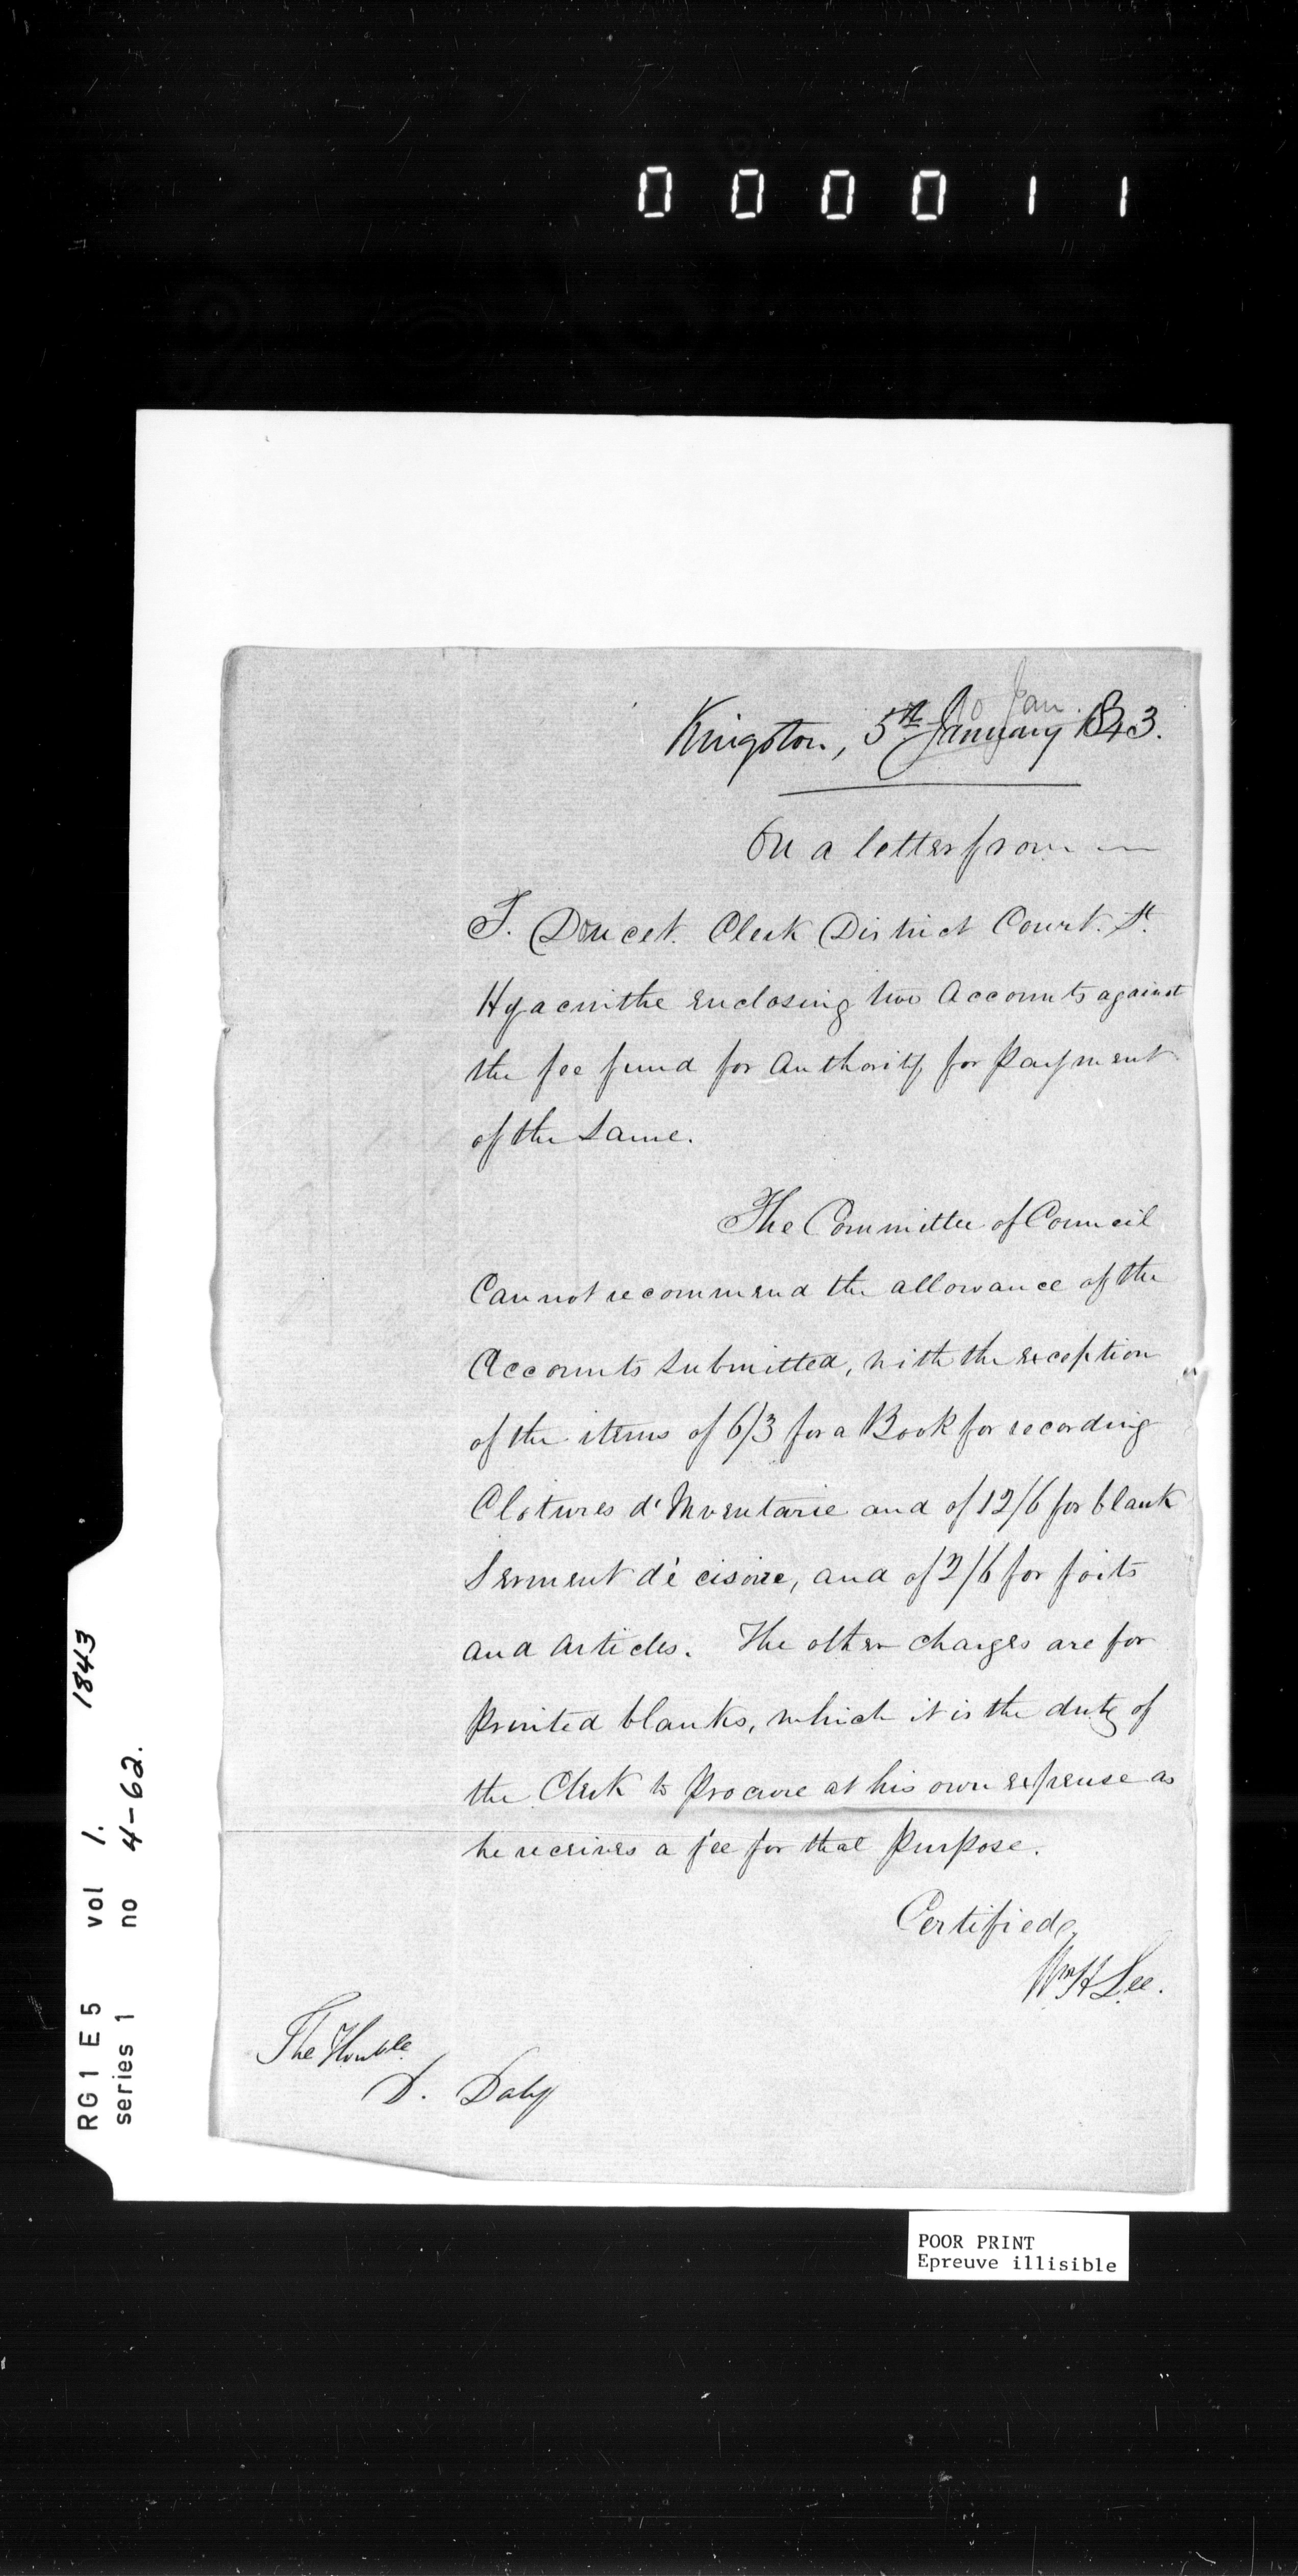 000011
10 Jan.
Kingston, 5th January 1843.
On a letter from
T. Doucet. Clerk District Court. St.
Hyacinthe enclosing two Accounts against
the fee fund for Authority for Payment
of the Same.
The Committee of Council
Cannot recommend the allowance of the
Accounts submitted, with the exception
of the items of 6/3 for a Book for recording
Clotures d'Inventarie and of 12/6 for blank
Serment dé cisoire, and of 2/6 for faits
and articles. The other charges are for
Printed blanks, which it is the duty of
the Clerk to Procure at his own expense as
he receives a fee for that Purpose.
Certified,
Wm H Lee.
The Honble.
D. Daly
RG1 E5 vol 1. 1843
series 1 no 4-62.
POOR PRINT
Epreuve illisible